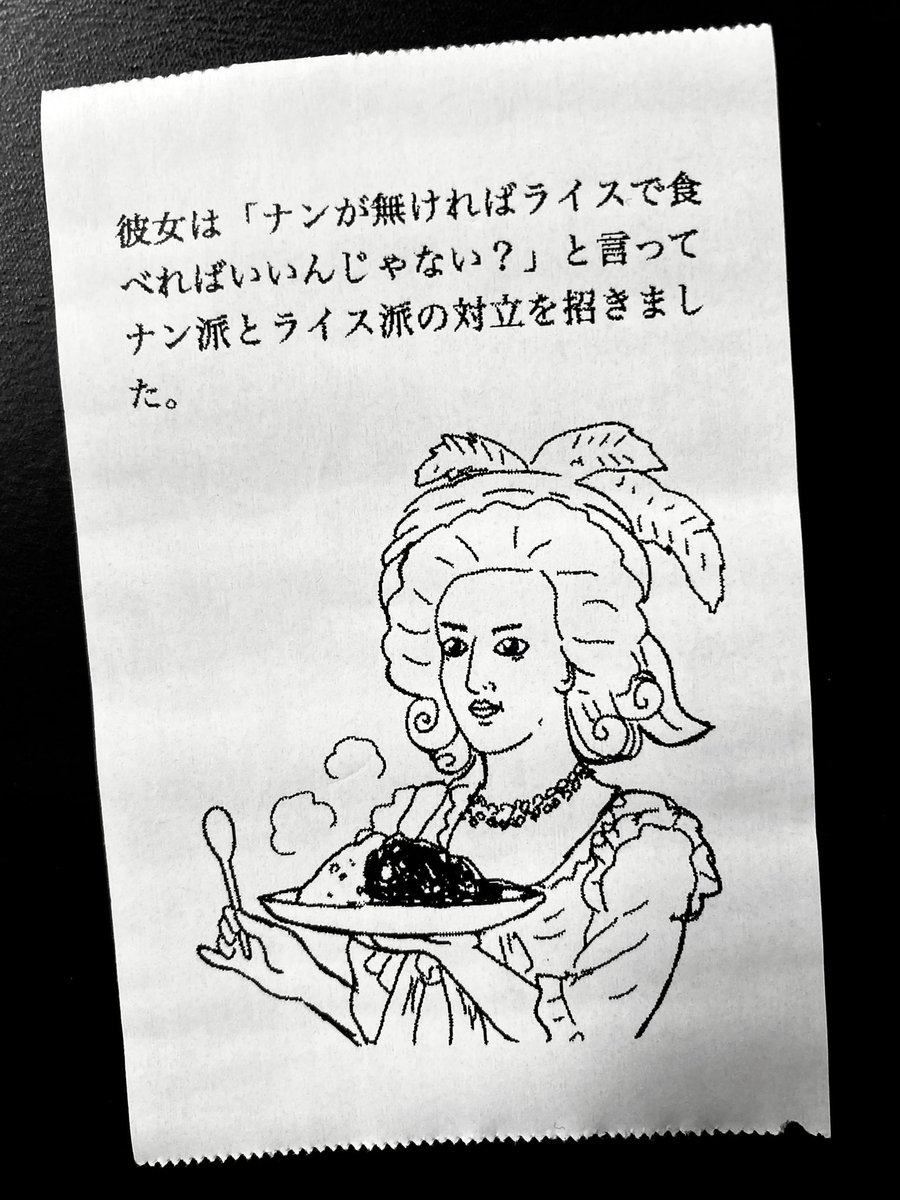 彼女は「ナンが無ければライスで食
べればいいんじゃない？」と言って
ナン派とライス派の対立を招きまし
た。